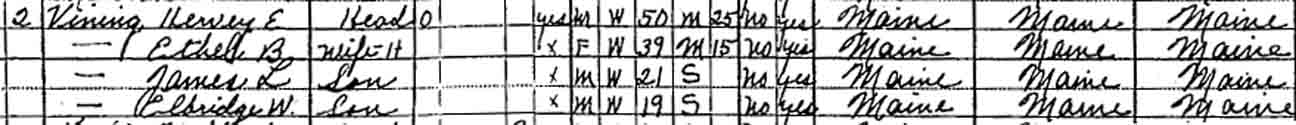 2 Vining, Hervey E Head O yes M W 50 M 25 no yes Maine Maine Maine
— Ethel B. Wife-H x F W 39 M 15 no yes Maine Maine Maine
— James L Son x M W 21 S no yes Maine Maine Maine
— Elbridge W. Son x M W 19 S no yes Maine Maine Maine